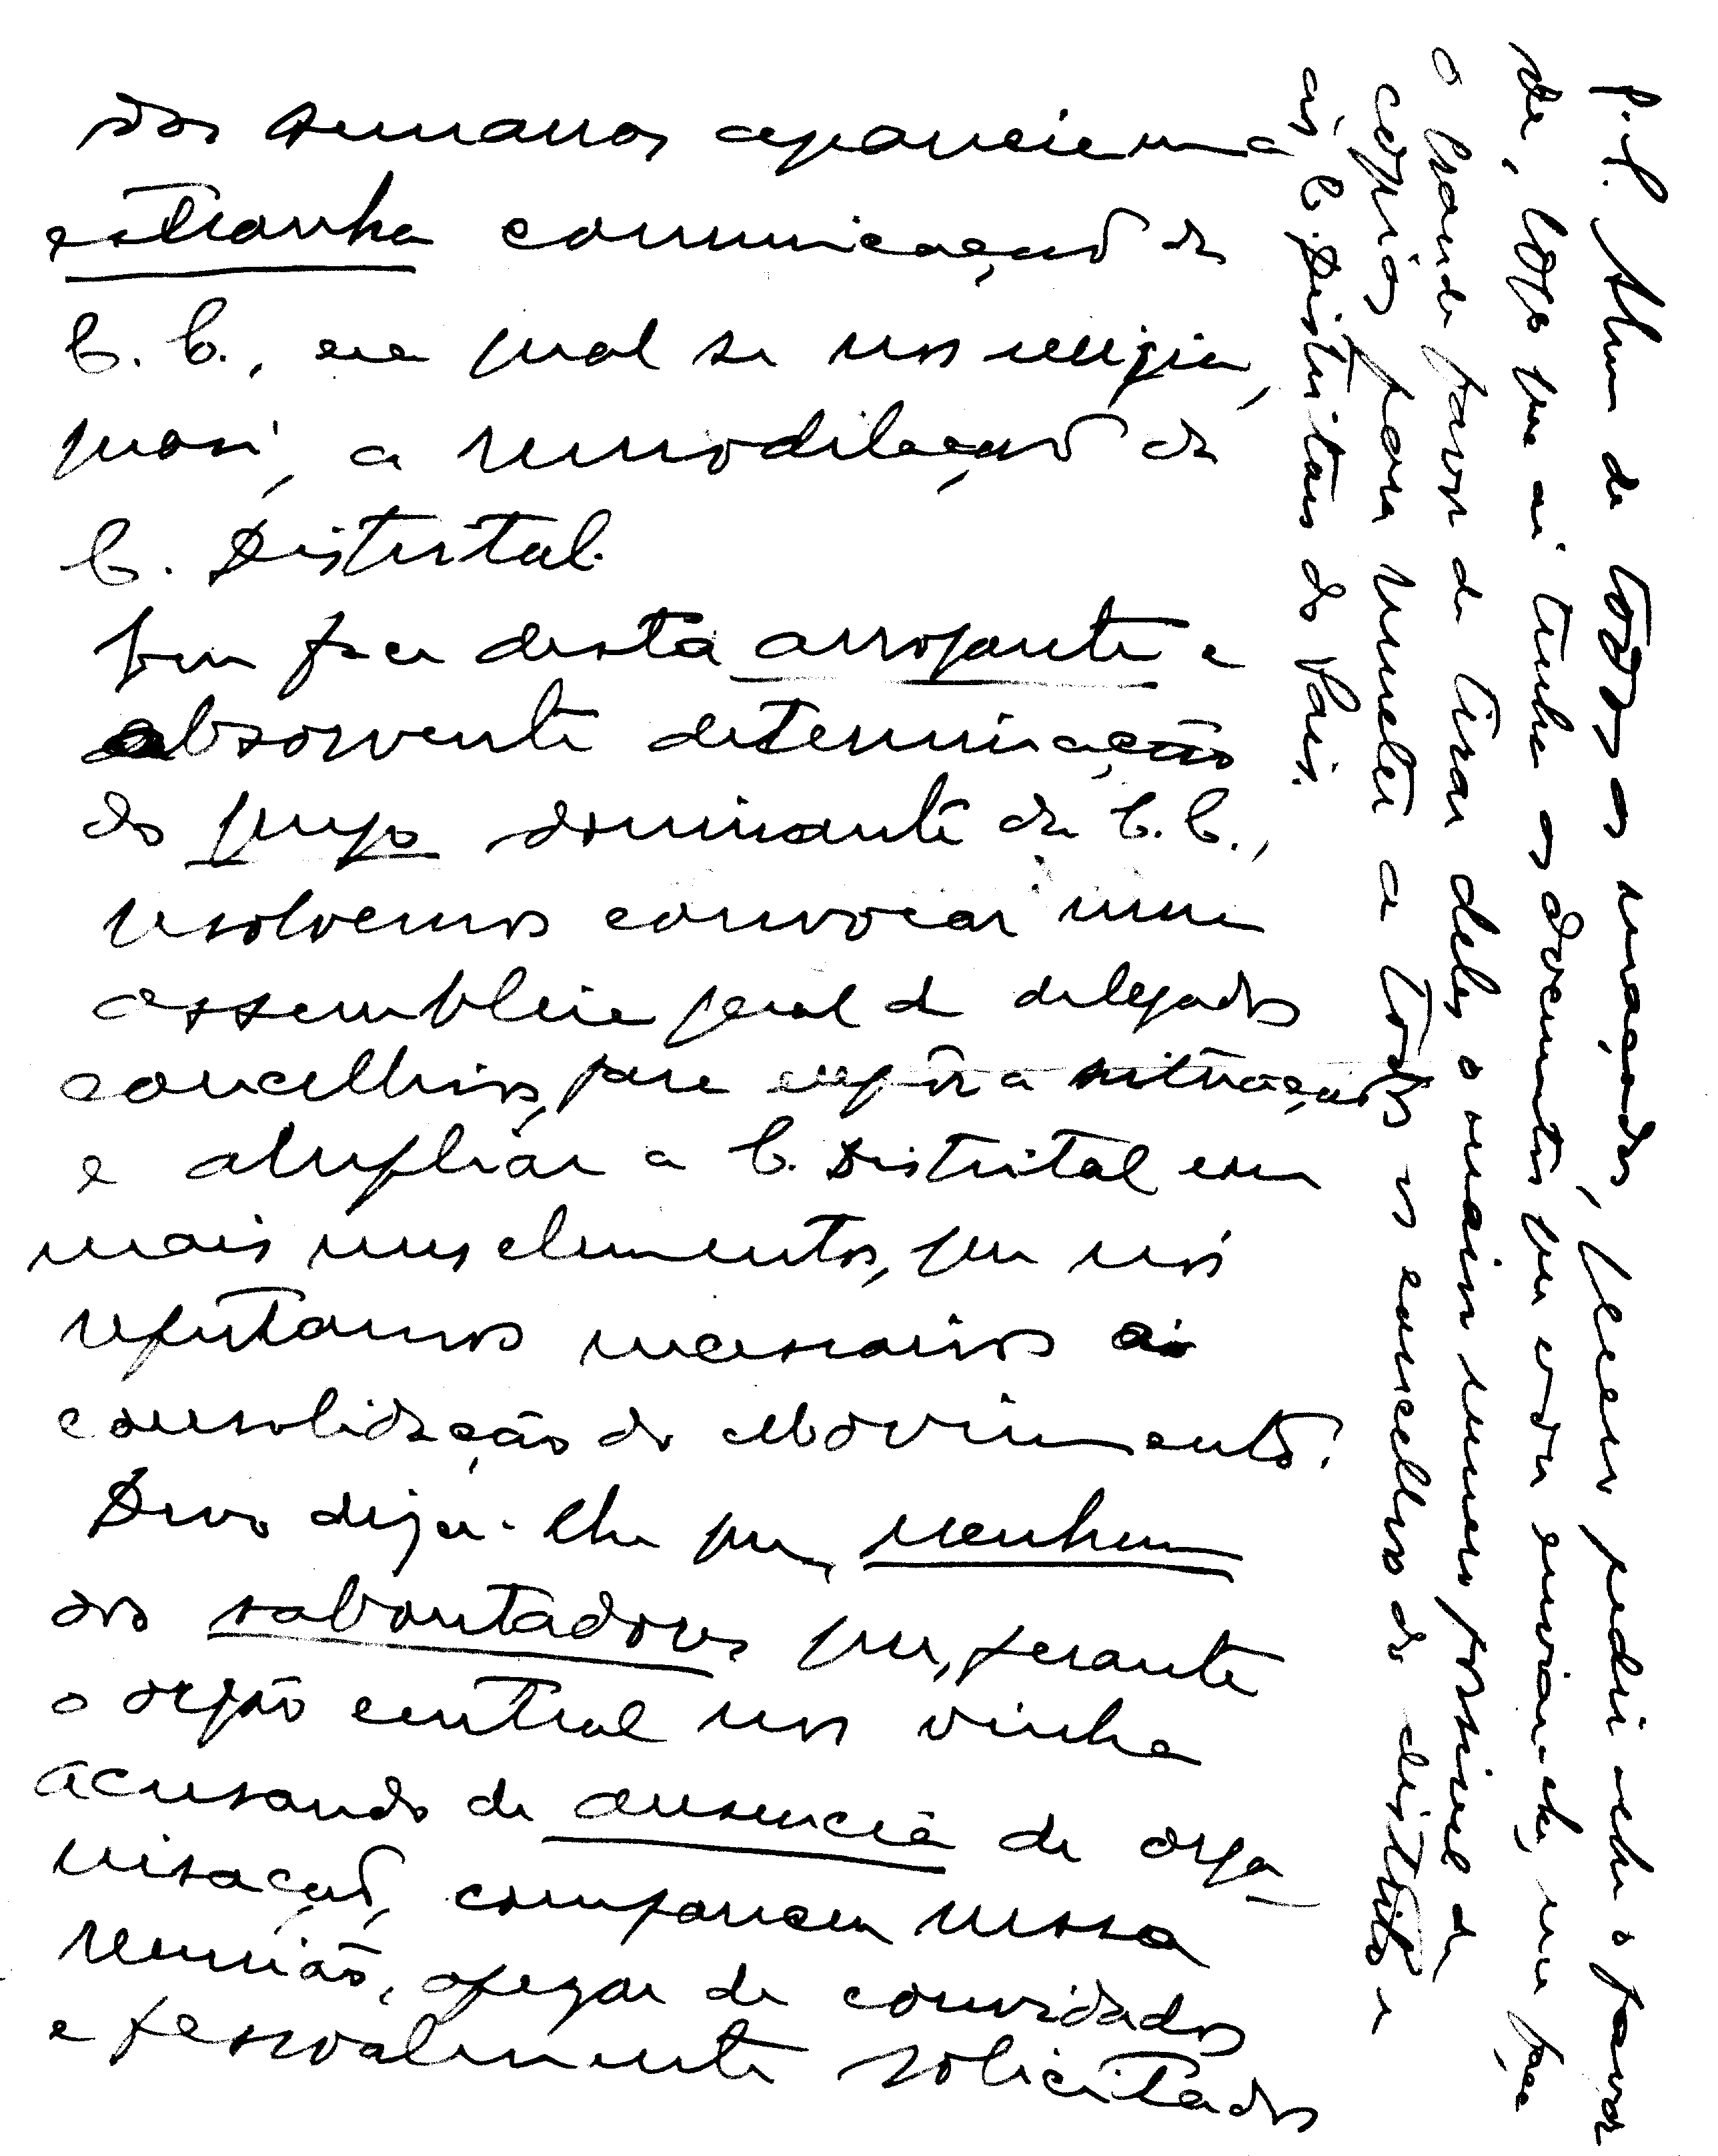 das semanas aparecia uma
estranha comunicação da
C. C., na qual se nos exigia,
quasi, a remodelação da
C. Distrital.
Em face desta arrogante e
absorvente determinação
do grupo dominante da C. C.,
resolvemos convocar uma
assembleia geral de delegados
concelhios, para expôr a situação
e ampliar a C. Distrital com
mais uns elementos, que nós
reputamos necessarios á
consolidação do Movimento.
Devo dizer-lhe que, nenhum
dos saboutadores que, perante
o orgão central nos vinha
acusando de ausencia de orga-
nisação, compareceu nessa
reunião, apezar de convidados
e pessoalmente solicitados
P.S. Alem de todas as maçadas, quero pedir-lhe o favor
de, logo que aí tenha os documentos que vou enviar-lhe, me faça
o grande favor de tirar deles o maior numero possivel de
copias para remeter a todos os concelhos do distrito e
ás C. Distritais do Pais.